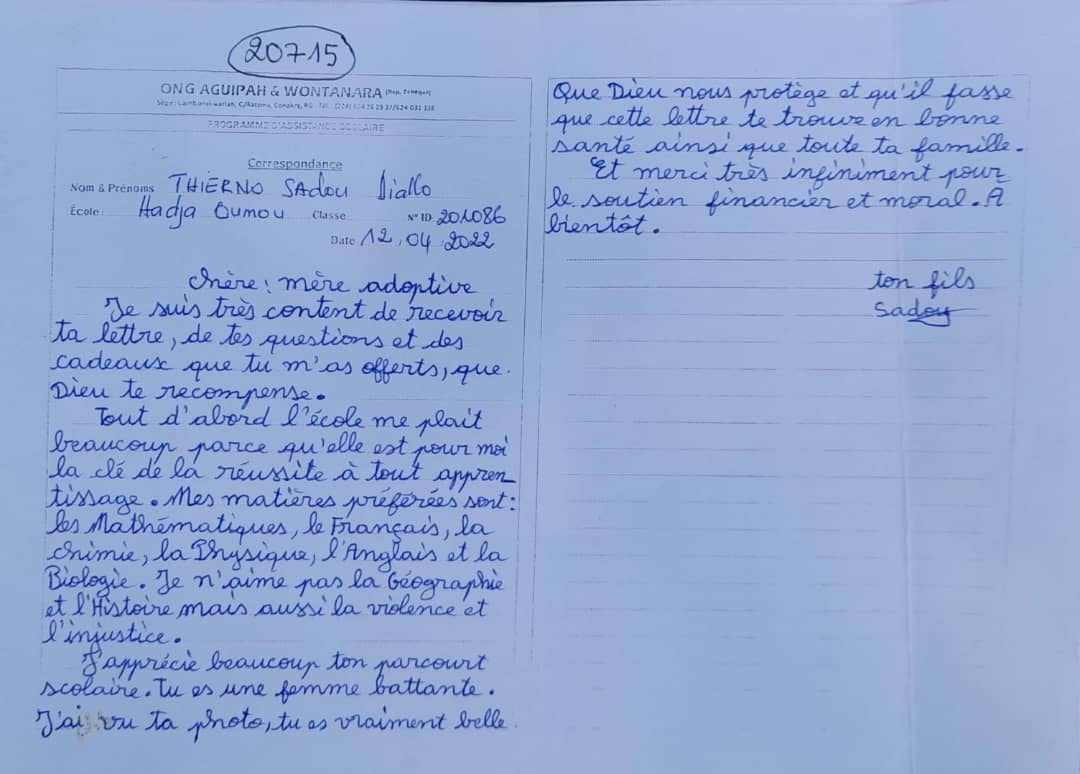 20715
ONG AGUIPAH & WONTANARA
PROGRAMME D'ASSISTANCE SCOLAIRE
Correspondance
Nom & Prénoms THIERNO SAdou Diallo
École: Hadja Oumou Classe N° ID: 201086
Date 12, 04, 2022
chère: mère adoptive
Je suis très content de recevoir
ta lettre, de tes questions et des
cadeaux que tu m'as offerts, que
Dieu te recompense.
Tout d'abord l'école me plait
beaucoup parce qu'elle est pour moi
la clé de la réussite à tout appren
tissage. Mes matières préférées sont:
les Mathématiques, le Français, la
chimie, la Physique, l'Anglais et la
Biologie. Je n'aime pas la Géographie
et l'Histoire mais aussi la violence et
l'injustice.
J'apprécie beaucoup ton parcourt
scolaire. Tu es une femme battante.
J'ai vu ta photo, tu es vraiment belle.
Que Dieu nous protège et qu'il fasse
que cette lettre te trouve en bonne
santé ainsi que toute ta famille.
Et merci très infiniment pour
le soutien financier et moral. A
bientôt.
ton fils
Sadou